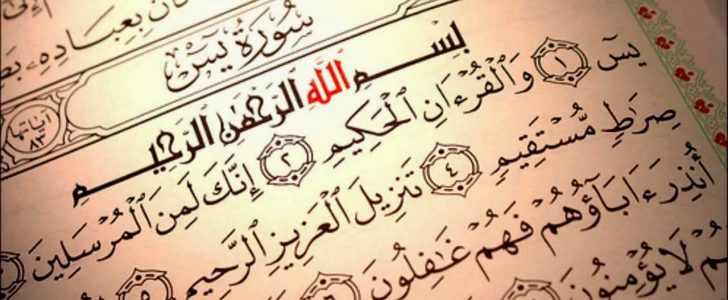 إِلَىٰٓ
بِعِبَادِهِۦ
سُورَةُ يسٓ
آيَاتُهَا ٨٣
بِسْمِ ٱللَّهِ ٱلرَّحْمَٰنِ ٱلرَّحِيمِ
يسٓ ١ وَٱلْقُرْءَانِ ٱلْحَكِيمِ ٢ إِنَّكَ لَمِنَ ٱلْمُرْسَلِينَ
صِرَٰطٍ مُّسْتَقِيمٍ ٤ تَنزِيلَ ٱلْعَزِيزِ ٱلرَّحِيمِ ٥
أُنذِرَ ءَابَآؤُهُمْ فَهُمْ غَٰفِلُونَ ٦
لَا يُؤْمِنُونَ